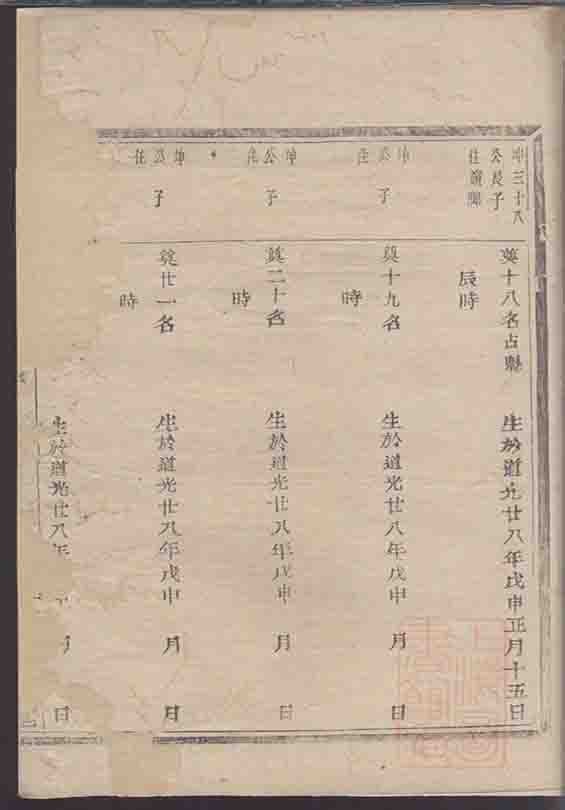 坤三十八
公長子
住嶺腳
英十八名占懸
辰時
生於道光廿八年戊申正月十五日
坤
公
住
子
英十九名
時
生於道光廿八年戊申 月 日
坤
公
住
子
英二十名
時
生於道光廿八年戊申 月 日
坤
公
住
子
英廿一名
時
生於道光廿八年戊申 月 日
生於道光廿八年 月 日